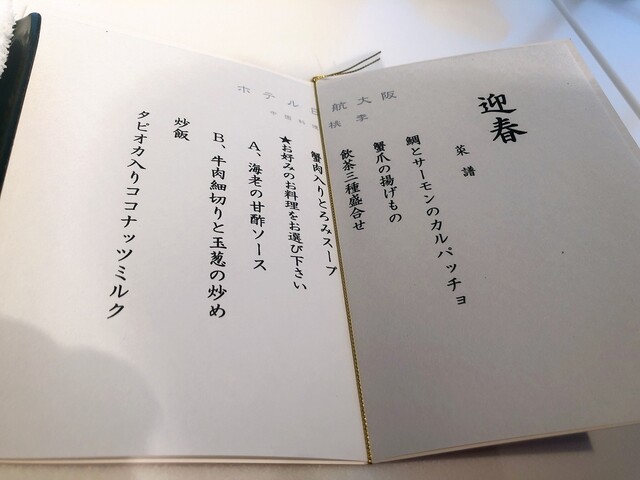 迎春
菜譜
鯛とサーモンのカルパッチョ
蟹爪の揚げもの
飲茶三種盛合せ
蟹肉入りとろみスープ
★お好みのお料理をお選び下さい
A、海老の甘酢ソース
B、牛肉細切りと玉葱の炒め
炒飯
タピオカ入りココナッツミルク
ホテル日航大阪
中国料理 桃李